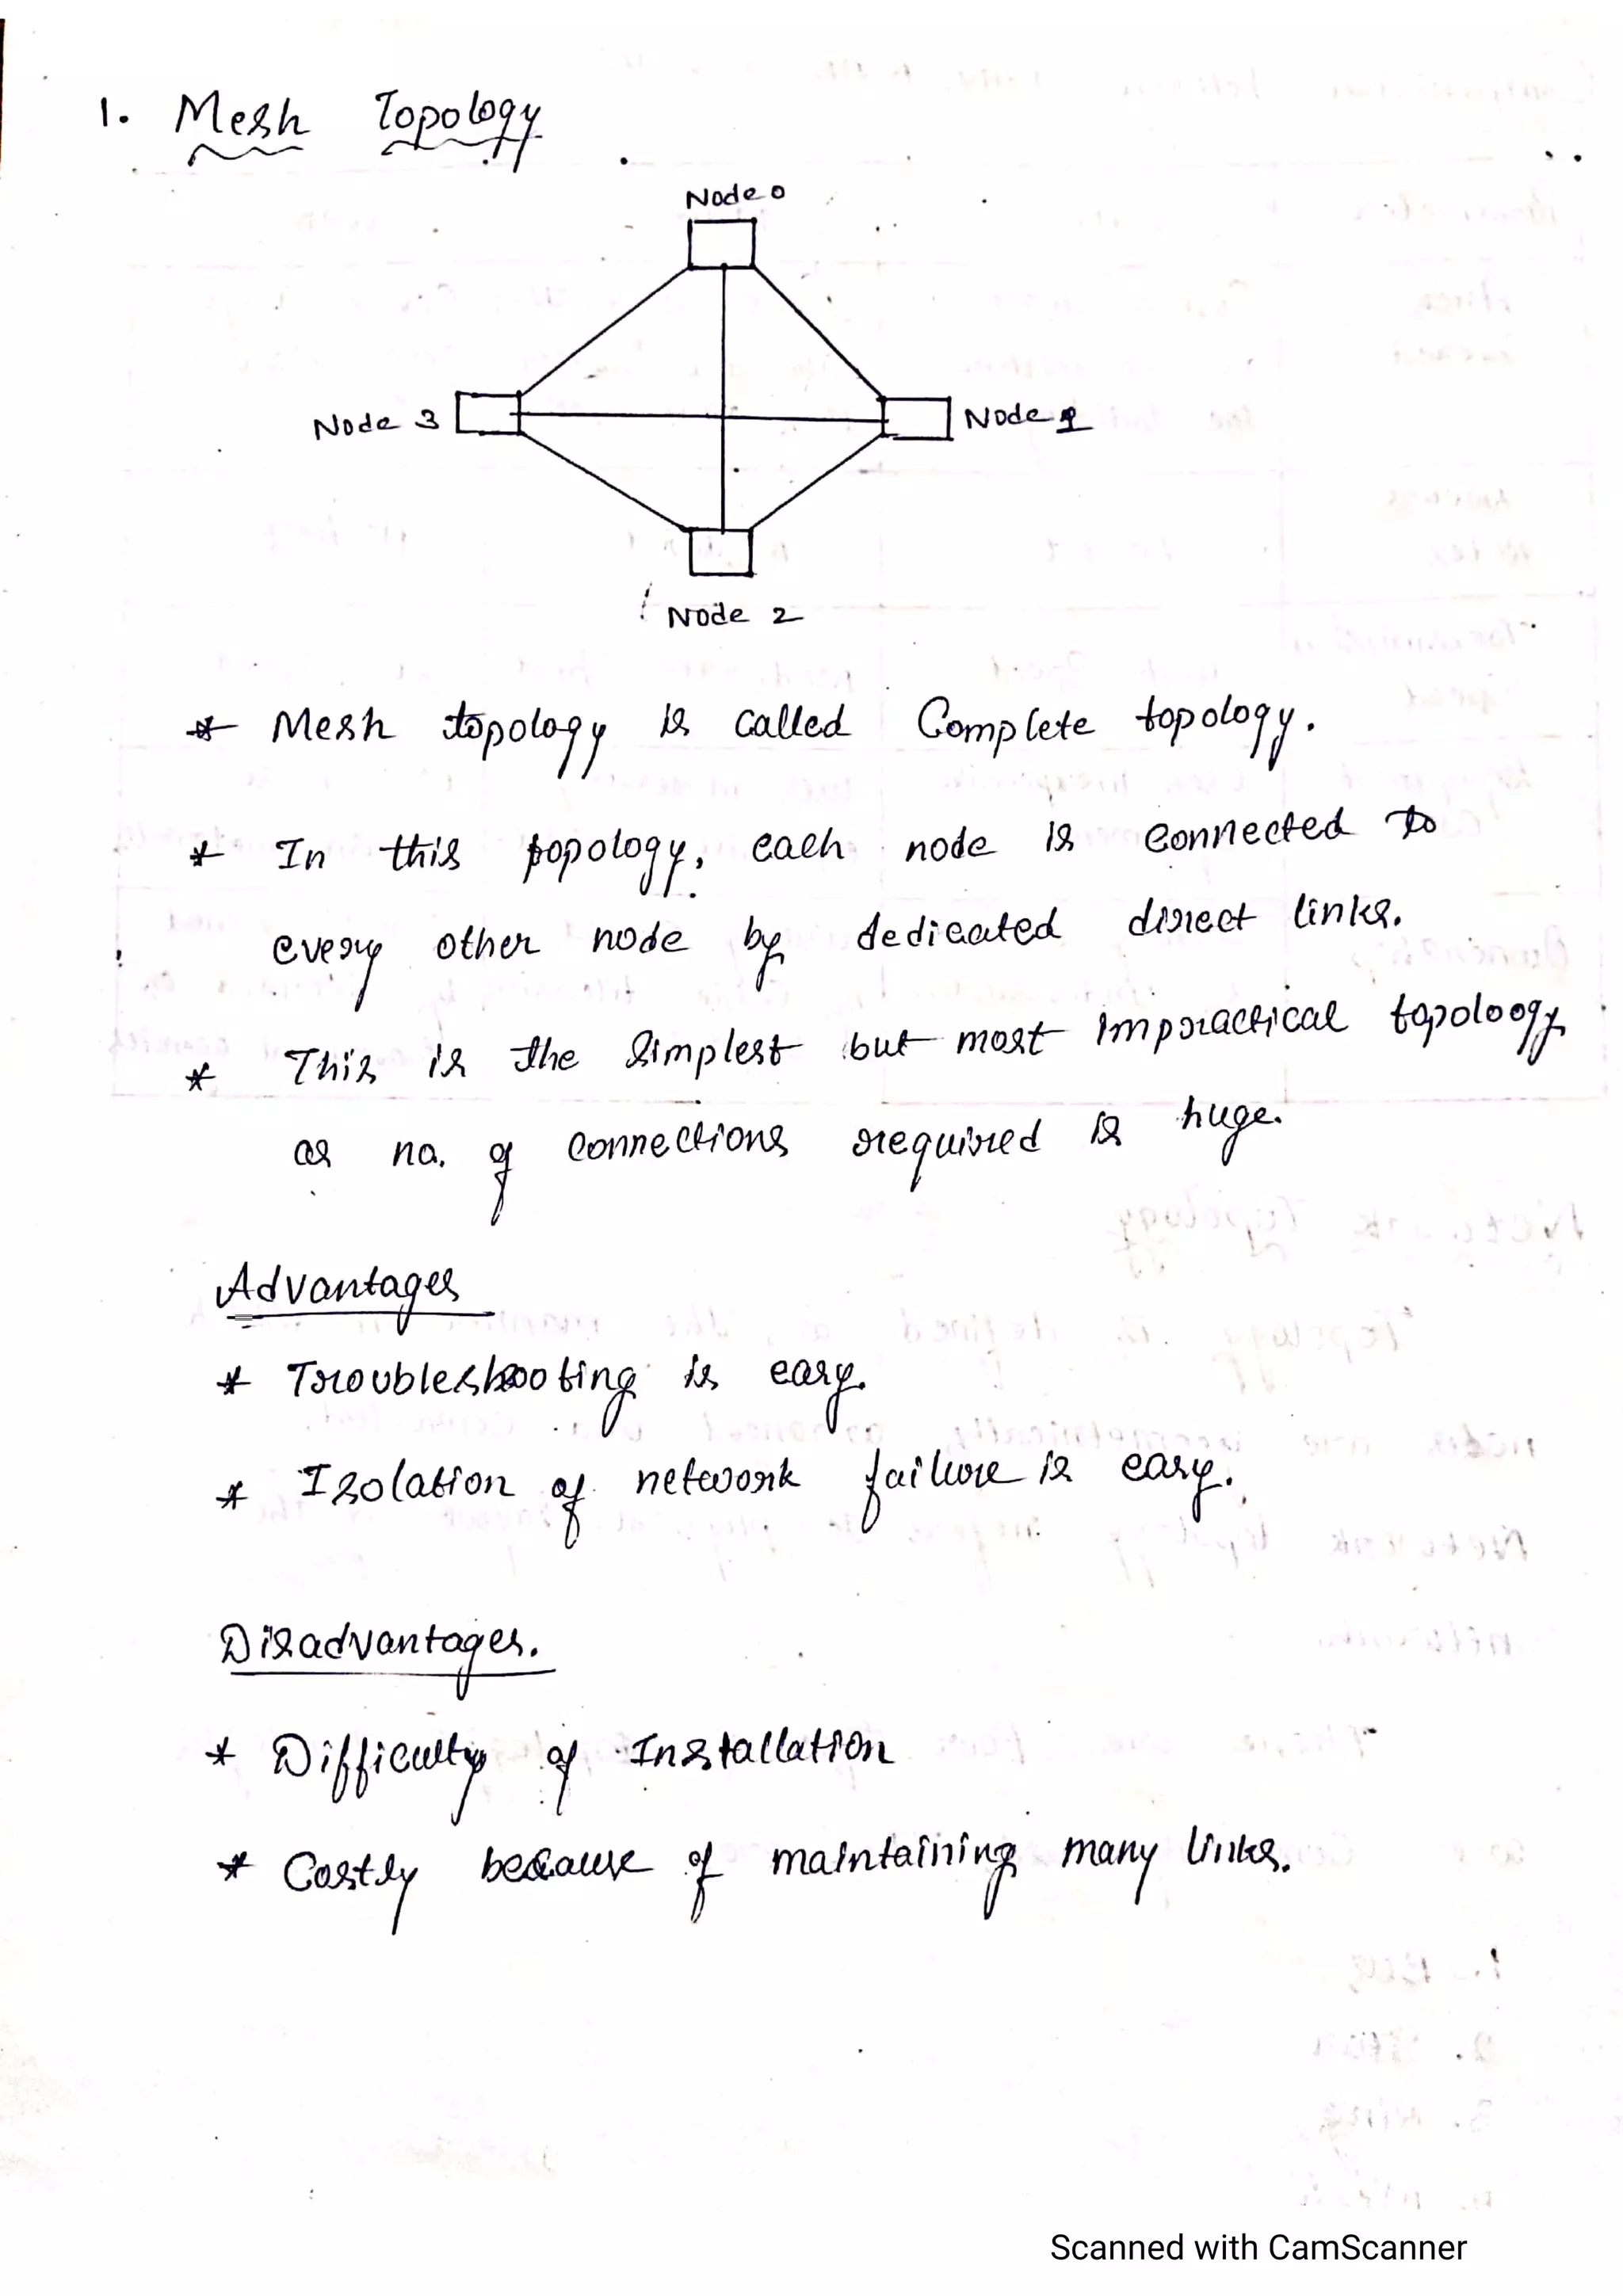 1. Mesh Topology
Node 0
Node 3
Node 1
Node 2
* Mesh topology is called Complete topology.
* In this topology, each node is connected to
every other node by dedicated direct links.
* This is the simplest but most impractical topoloogy
as no. of connections required is huge.
Advantages
* Troubleshooting is easy.
* Isolation of network failure is easy.
Disadvantages.
* Difficulty of Installation
* Costly because of maintaining many links.
Scanned with CamScanner